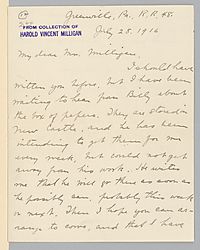 Greenville, Pa., R.R. 48.
FROM COLLECTION OF
HAROLD VINCENT MILLIGAN
July 28, 1916
My dear Mr. Milligan,
I should have
written you before, but I have been
waiting to hear from Billy about
the box of papers. They are stored in
New Castle, and he has been
intending to get them for me
every week, but could not get
away from his work. He writes
me that he will go there as soon as
he possibly can, probably this week
or next. Then I hope you can ar-
range to come, and that I have